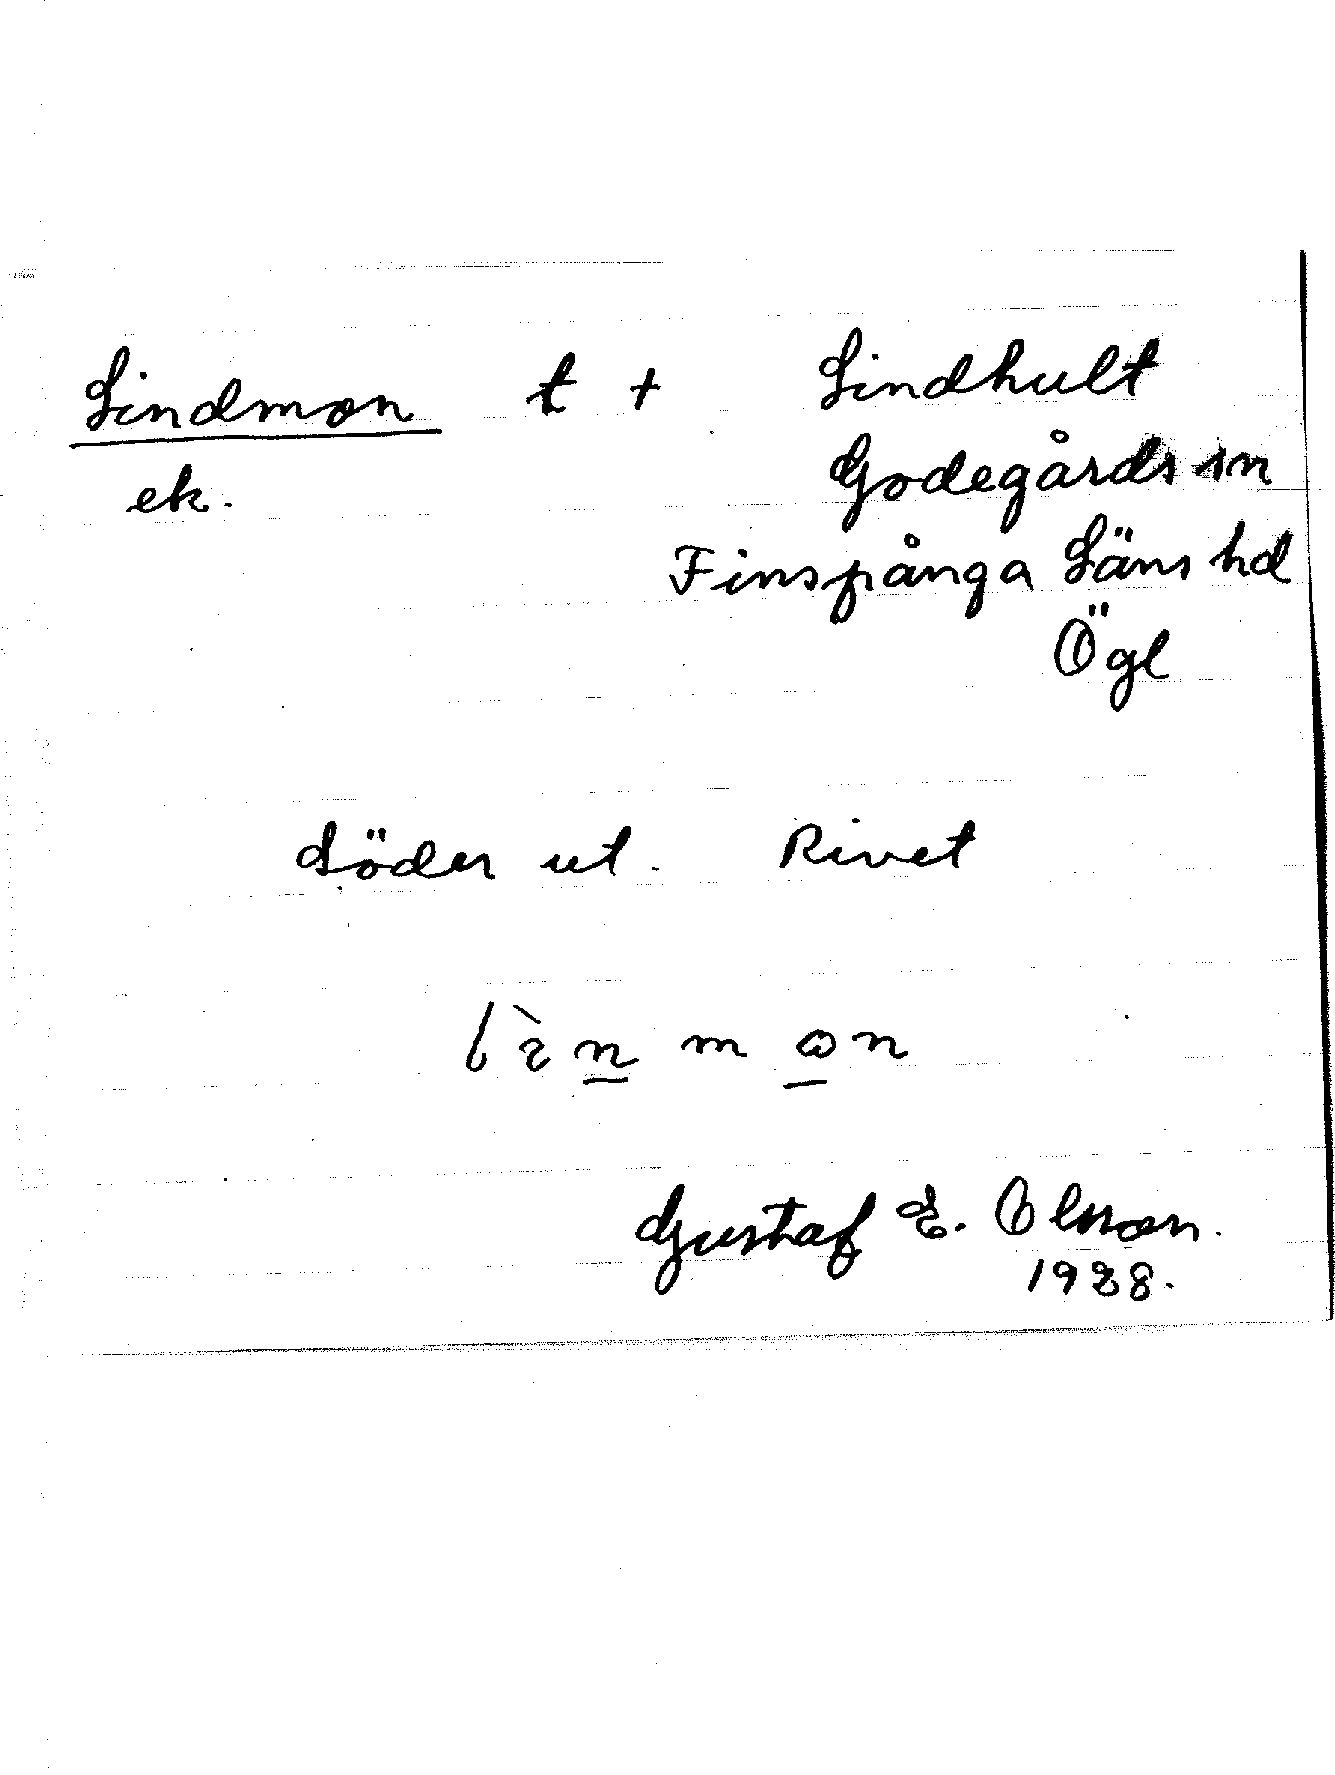 Lindmon t + Lindhult
ek. Godegårds sn
Finspånga Läns hd
Ögl
Söder ut. Rivet
Gustaf E. Olsson.